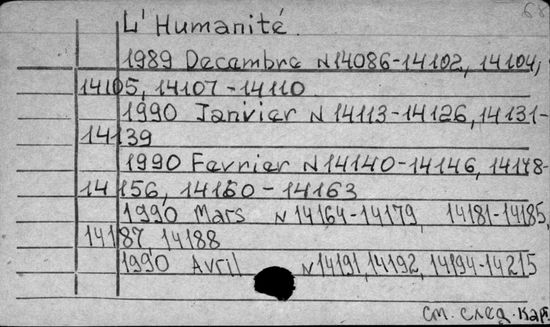 68
L'Humanité
1989 Decambre N14086-14102, 14104,
14105, 14107-14110
1990 Janivier N14113-14126, 14131-
14139
1990 Fevrier N14140-14146, 14148-
14156, 14160-14163
1990 Mars N14164-14179, 14181-14185,
14187, 14188
1990 Avril N14191, 14192, 14194-14215
см. след. кар.